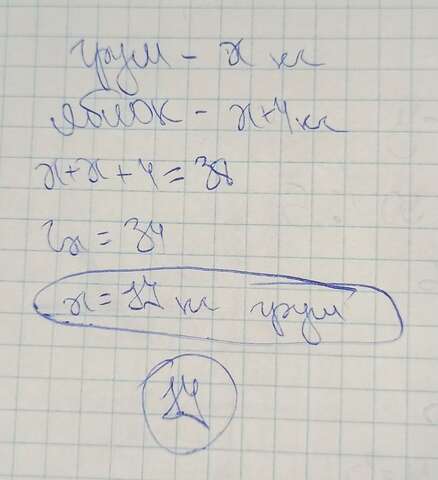 груш - x кг
яблок - x+4 кг
x+x+4=38
2x = 34
x = 17 кг груш
17